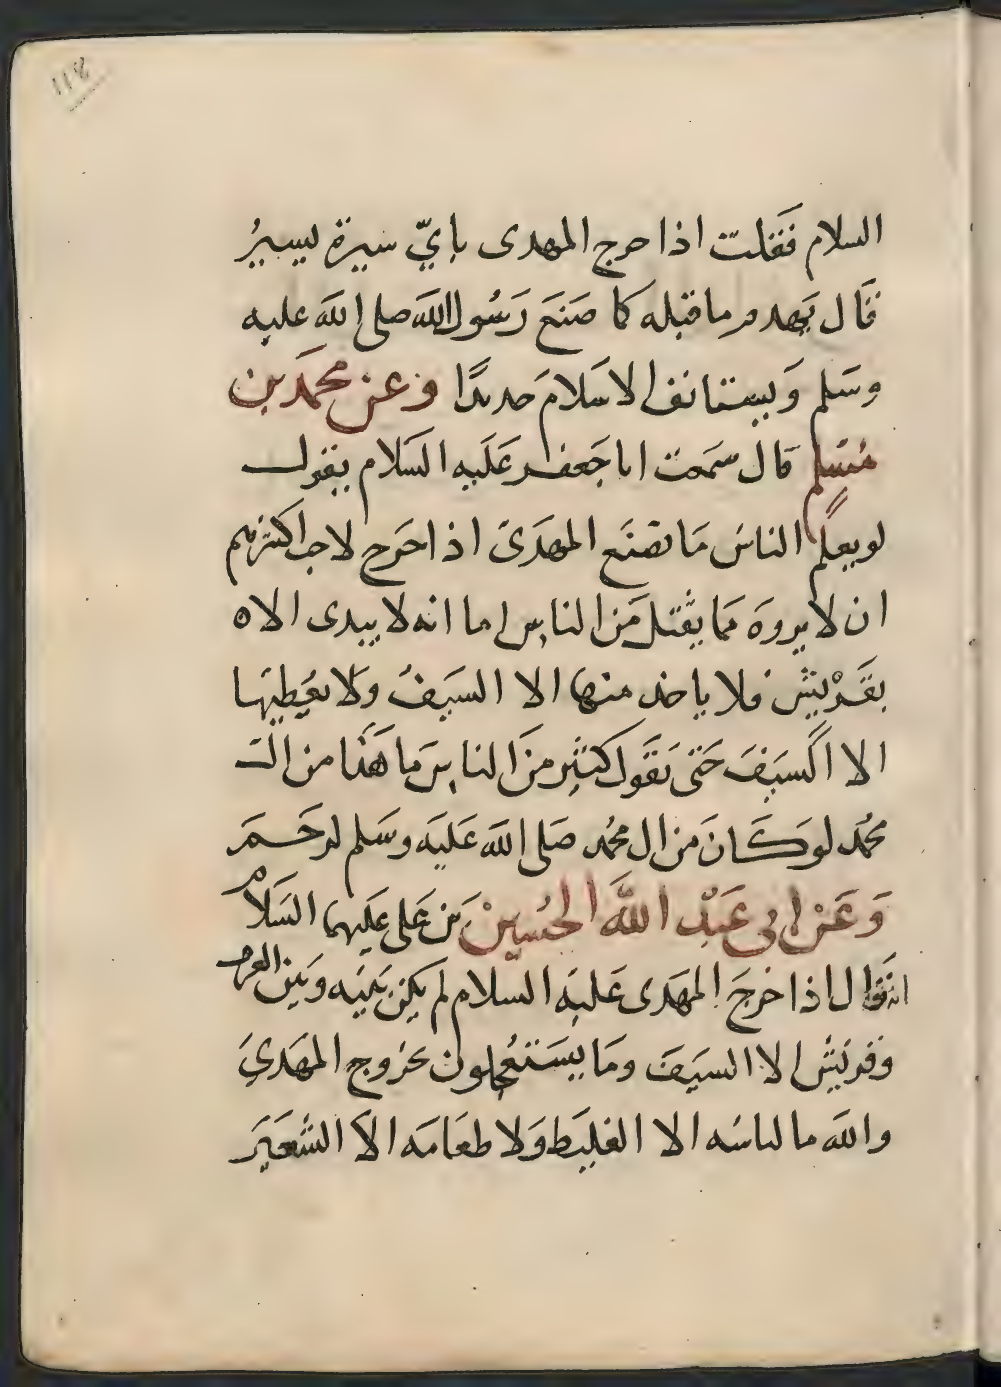 ١١٤
السلام فقلت اذا خرج المهدى بايّ سيرة يسيرُ
قال يهدم ما قبله كما صنعَ رَسُول الله صلى الله عليه
وسَلم وَيستانف الاسلامَ جديدًا وعن محمد بن
مُسلم قال سمعت ابا جَعفر عَليه السَلام يقول
لو يعلم الناس مَا يصنَع المهدىَ اذا خرَج لاحب اكثرهم
ان لا يروه مما يقتل مَن الناس اما انه لا يبدى الا ه
بقَريش فلا ياخذ منها الا السَيفُ وَلا يعُطيها
الا السَيفَ حَتى يَقوَل كثير من الناس ما هَذا من ال
محُمد لو كَانَ من ال محُمد صَلى الله عَليَه وسَلم لرحَمَ
وَعَن ابى عَبد الله الحُسين بن عَلى عَليهما السَلام
انه قال اذا خرجَ المهَدى عَليه السلام لم يكن بَينَه وبَين العرب
وقريش الا السيَفَ ومَا يسَتعُجلون بخروج المهَديَ
والله ما لباسُه الا الغليَظ وَلا طعَامَه الاَ الشعَيَر